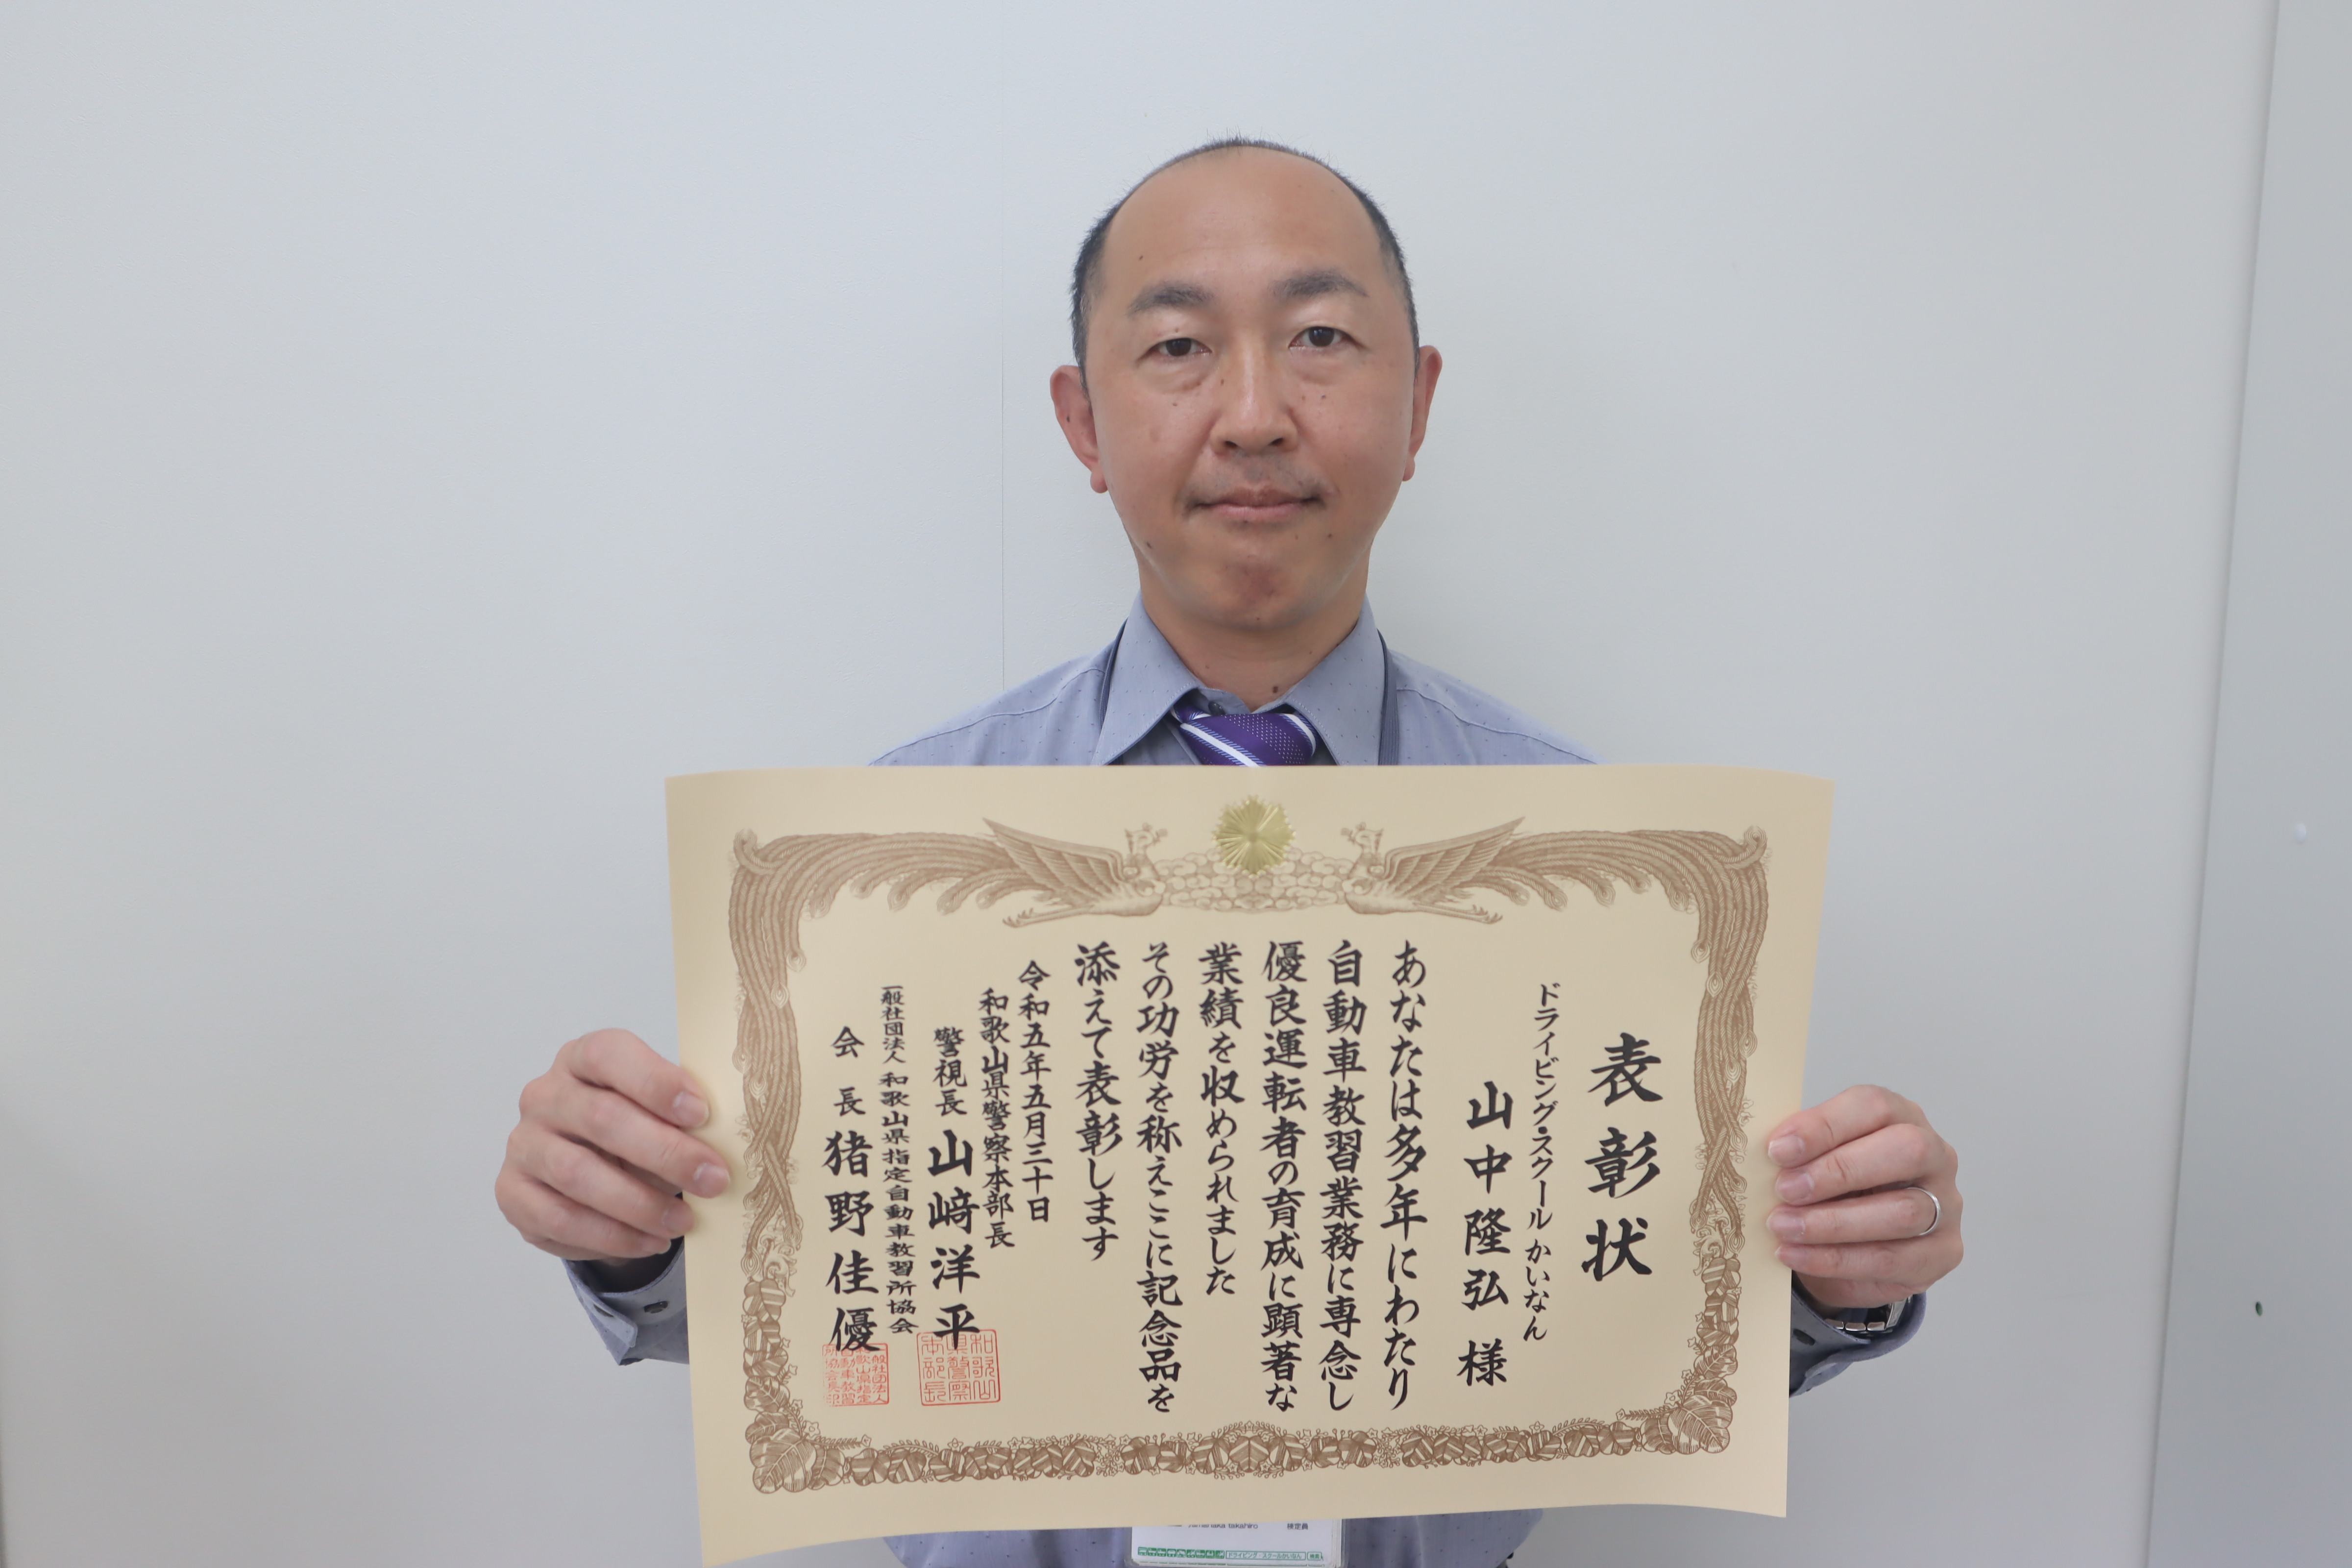 表彰状
ドライビング・スクールかいなん
山中隆弘 様
あなたは多年にわたり
自動車教習業務に専念し
優良運転者の育成に顕著な
業績を収められました
その功労を称えここに記念品を
添えて表彰します
令和五年五月三十日
和歌山県警察本部長
警視長 山﨑洋平
一般社団法人 和歌山県指定自動車教習所協会
会長 猪野佳優
和歌山県警察本部長
検定員
ドライビング・スクールかいなん